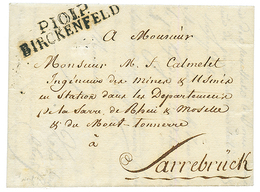 P101P
BIRCKENFELD
A Monsieur
Monsieur M. J. Calmelet
Ingénieur des mines & Usines
en Station dans les Départements
de la Sarre, de Rhin & Moselle
& du Mont-tonnerre
à
Sarrebrück